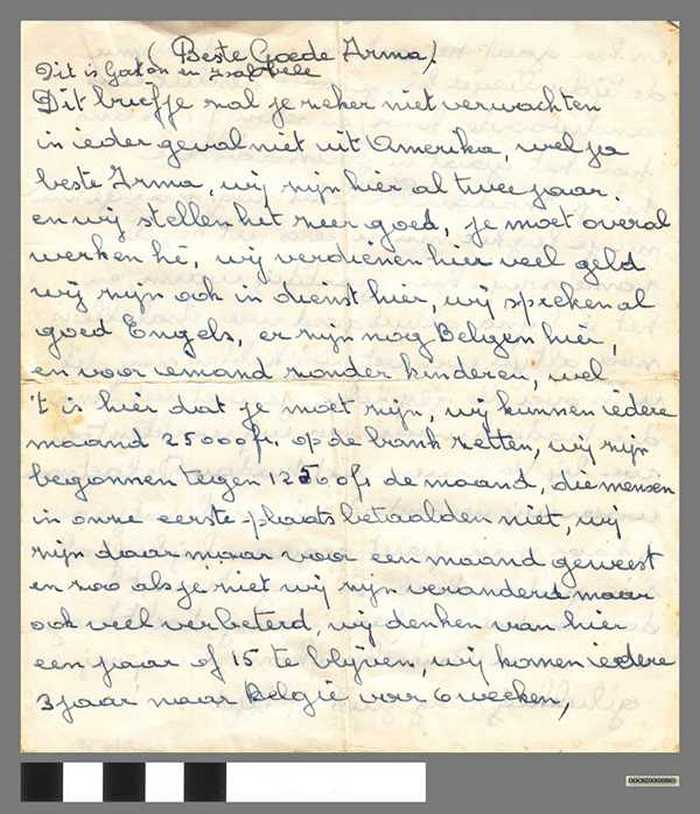 (Beste Goede Irma).
Dit is Gaston en Isabelle
Dit briefje zal je zeker niet verwachten
in ieder geval niet uit Amerika, wel ja
beste Irma, wij zijn hier al twee jaar.
en wij stellen het zeer goed, je moet overal
werken hé, wij verdienen hier veel geld
wij zijn ook in dienst hier, wij spreken al
goed Engels, er zijn nog Belgen hier,
en voor iemand zonder kinderen, wel
't is hier dat je moet zijn, wij kunnen iedere
maand 25000 fr. op de bank zetten, wij zijn
begonnen tegen 12500 fr de maand, die mensen
in onze eerste plaats betaalden niet, wij
zijn daar maar voor een maand geweest
en zoo als je ziet wij zijn veranderd maar
ook veel verbeterd, wij denken van hier
een jaar of 15 te blijven, wij komen iedere
3 jaar naar België voor 6 weeken,